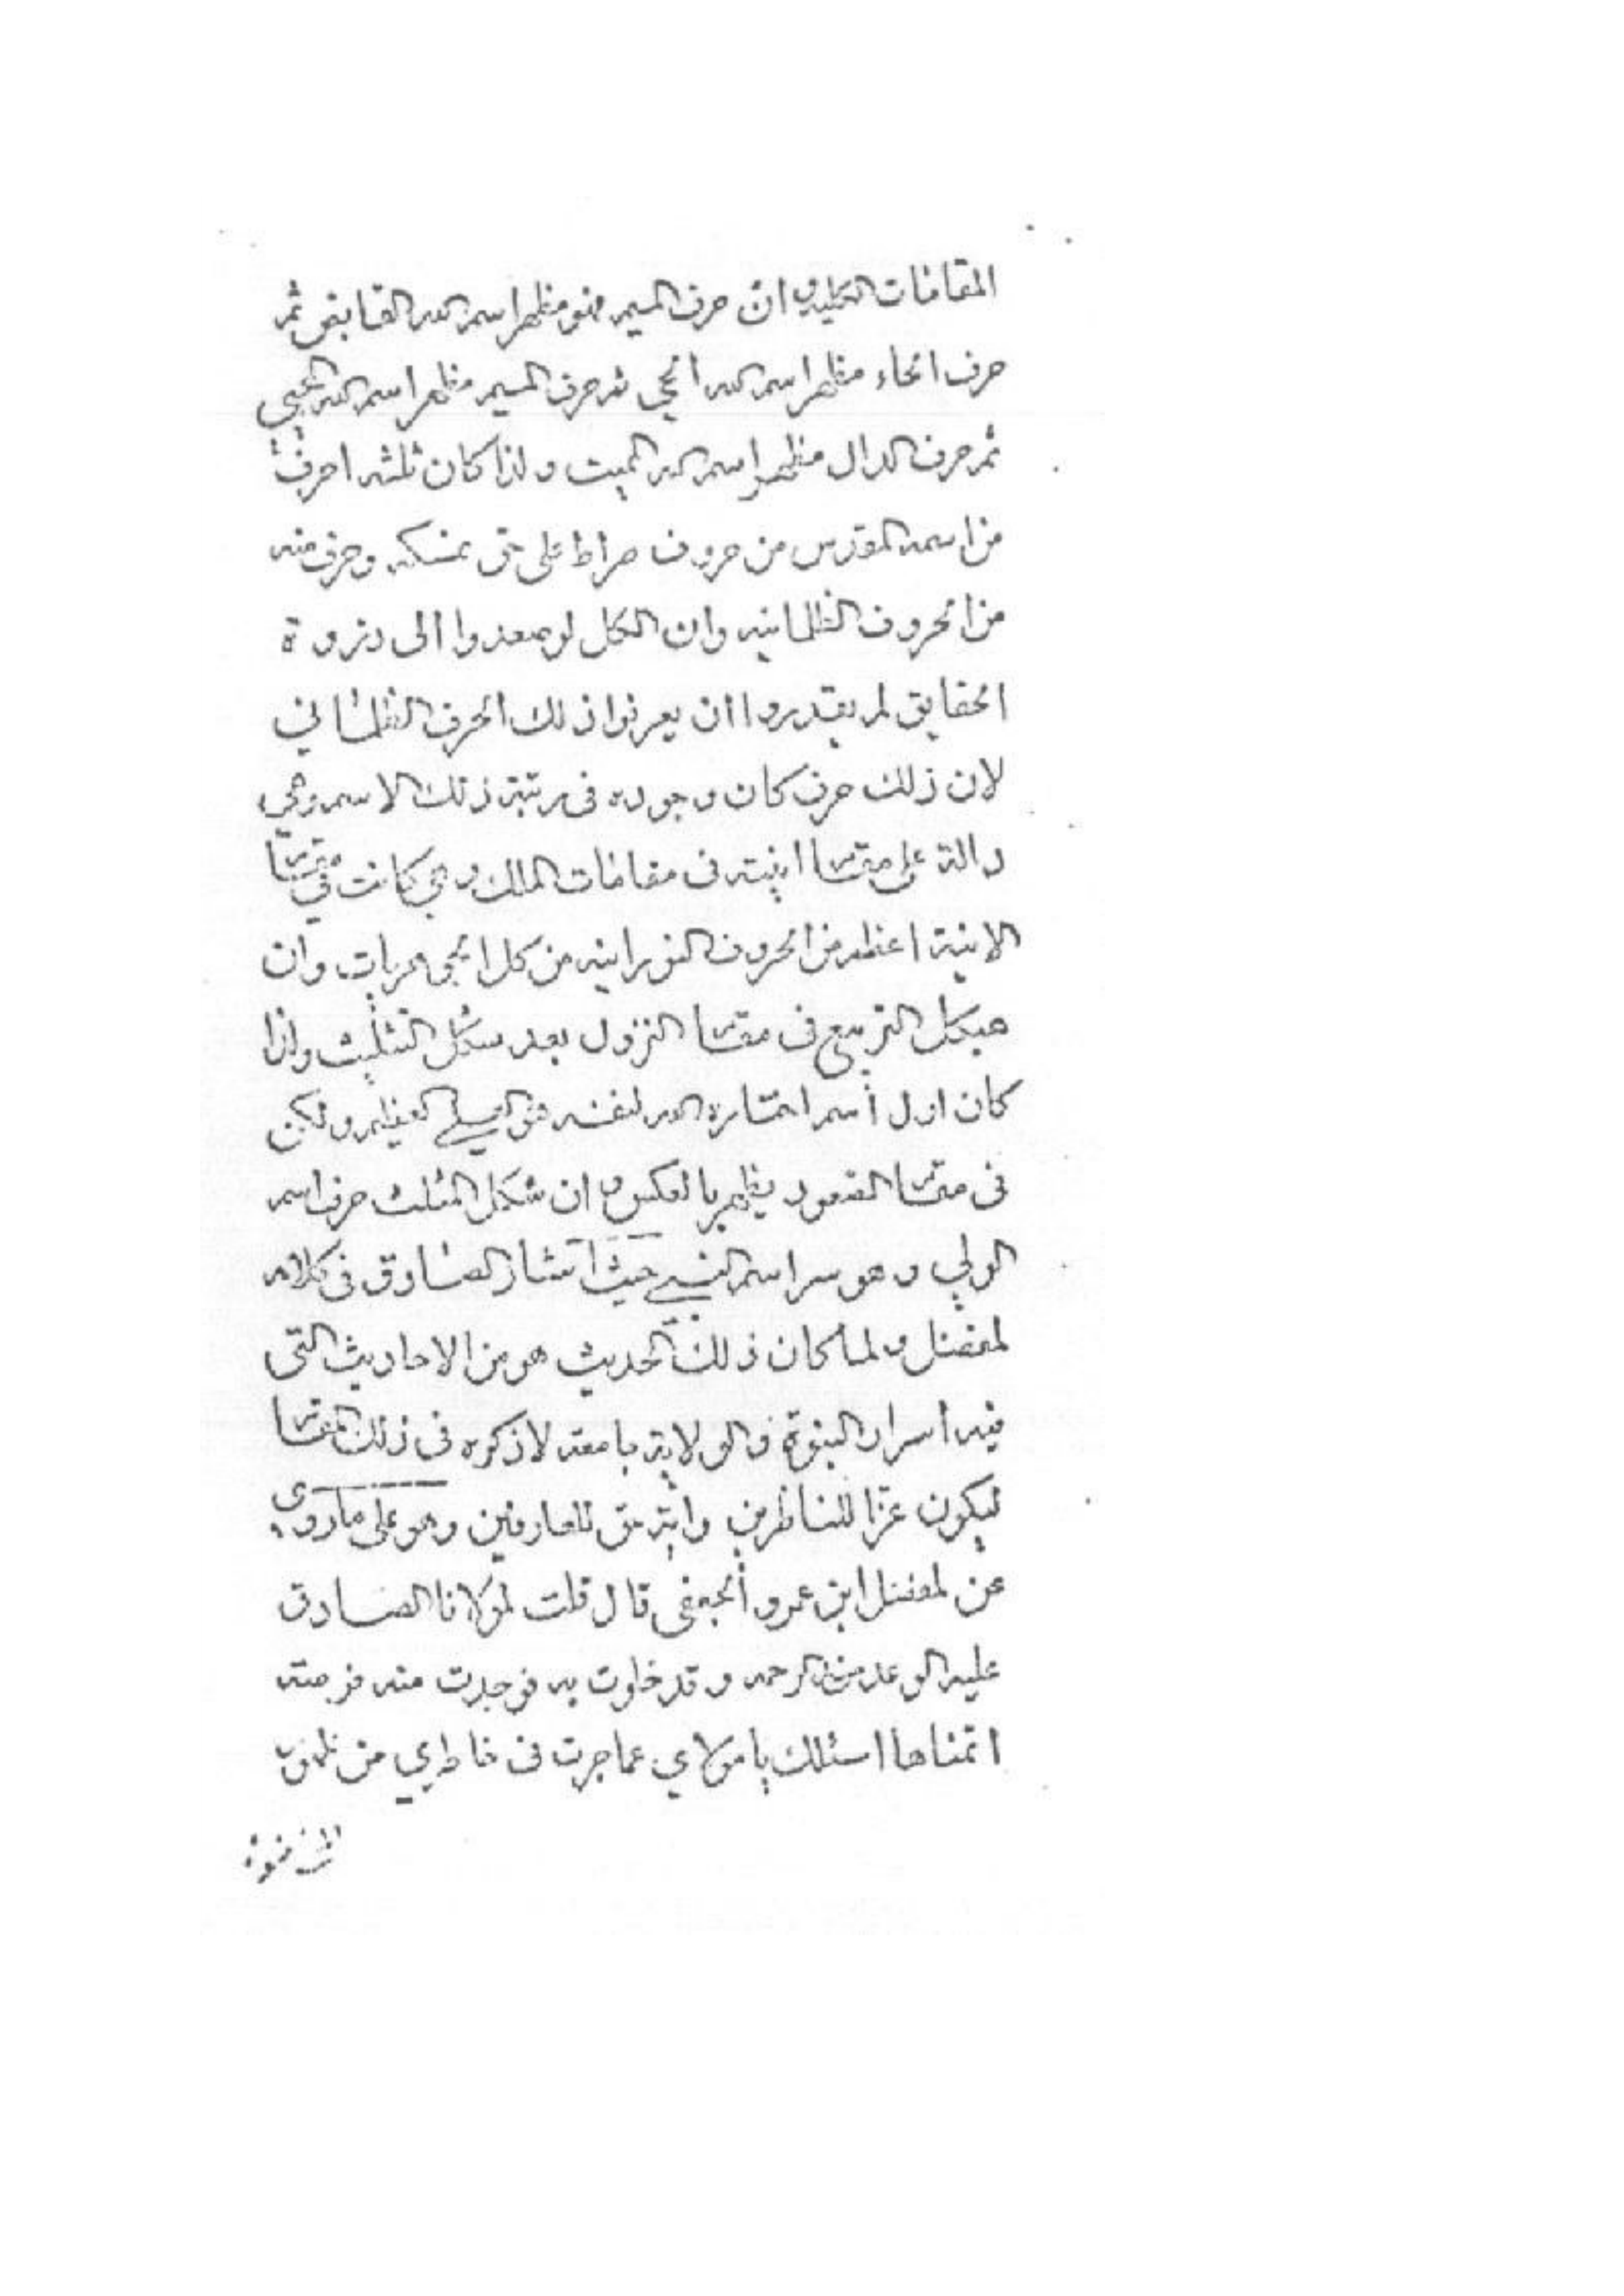 المقامات الكلية و ان حرف الميم فهو مظهر اسم الله القابض ثم
حرف الحاء مظهر اسم الله الحي ثم حرف الميم مظهر اسم الله المحيي
ثم حرف الدال مظهر اسم الله المميت و لذا كان ثلثه احرف
من اسمه المقدس من حروف صراط علي حق نمسكه و حرف منه
من الحروف الظلمانيه و ان الكل لو صعدوا الى ذروة
الحقايق لم يقدروا ان يعرفوا ذلك الحرف الظلماني
لان ذلك حرف كان وجوده فى رتبة ذلك الاسم و هي
دالة على مقام انيته فى مقامات الملك و هي كانت في مقام
الانية اعظم من الحروف النورانيه من كل و ان
هيكل التربيع فى مقام النزول بعد شكل التثليث و لذا
كان اول اسم اختاره الله لنفسه هو العلي العظيم و لكن
فى مقام الصعود يظهر بالعكس و ان شكل المثلث حرف اسم
الولي و هو سر اسم النبي حيث اشار الصادق فى كلامه
لمفضل و لما كان ذلك الحديث هو من الاحاديث التى
فيه اسرار النبوة و الولاية بامعه لاذكره فى ذلك المقام
ليكون عزا للناظرين و اية حق للعارفين و هو على ما روي
عن لمفضل ابن عمرو الجعفى قال قلت لمولانا الصادق
عليه الوعد من الرحمه و قد خلوت به فوجدت منه فرصته
اتمناها اسئلك يا مولاي عما جرت فى خاطري من ظهور